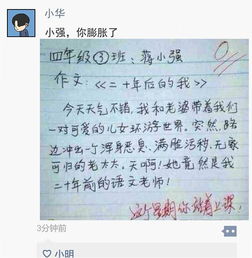 小华
小强，你膨胀了
四年级③班、蒋小强
作文：《二十年后的我》
今天天气不错，我和老婆带着我们
一对可爱的儿女环游世界，突然，路
边冲出一个浑身恶臭、满脸污秽、无家
可归的老太太，天啊！她竟然是我
二十年前的语文老师！
这个星期你站着上课
3分钟前
小明